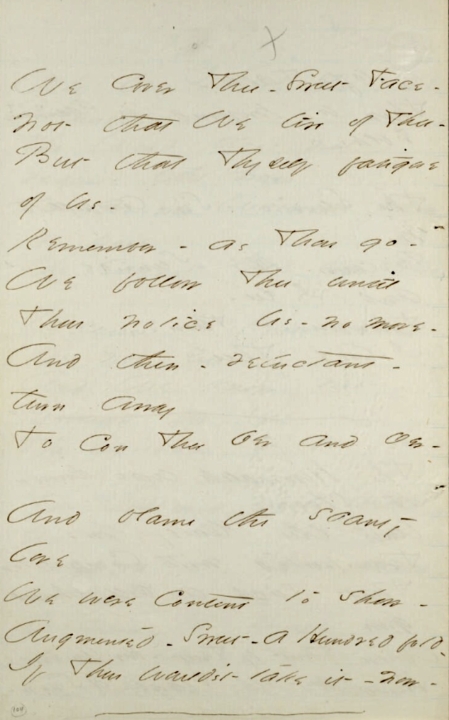 We Cover Thee - Sweet Face -
Not that We tire of Thee -
But that Thyself fatigue
of Us -
Remember - as Thou go -
We follow Thee until
Thou notice Us - no more -
And then - reluctant -
turn away
To Con Thee O'er and O'er -
And blame the scanty
love
We were Content to show -
Augmented - Sweet - a Hundred fold -
If Thou would'st take it - now -